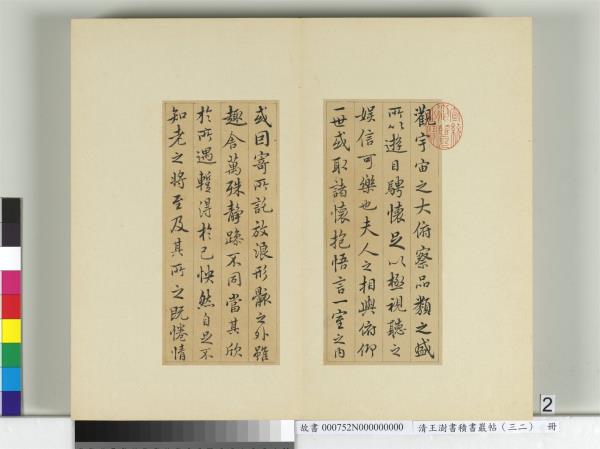 觀宇宙之大俯察品類之盛
所以遊目騁懷足以極視聽之
娛信可樂也夫人之相與俯仰
一世或取諸懷抱悟言一室之內
或因寄所託放浪形骸之外雖
趣舍萬殊靜躁不同當其欣
於所遇暫得於己怏然自足不
知老之將至及其所之既惓情
2
故書 000752N000000000 清王澍書積書巖帖(三二) 冊